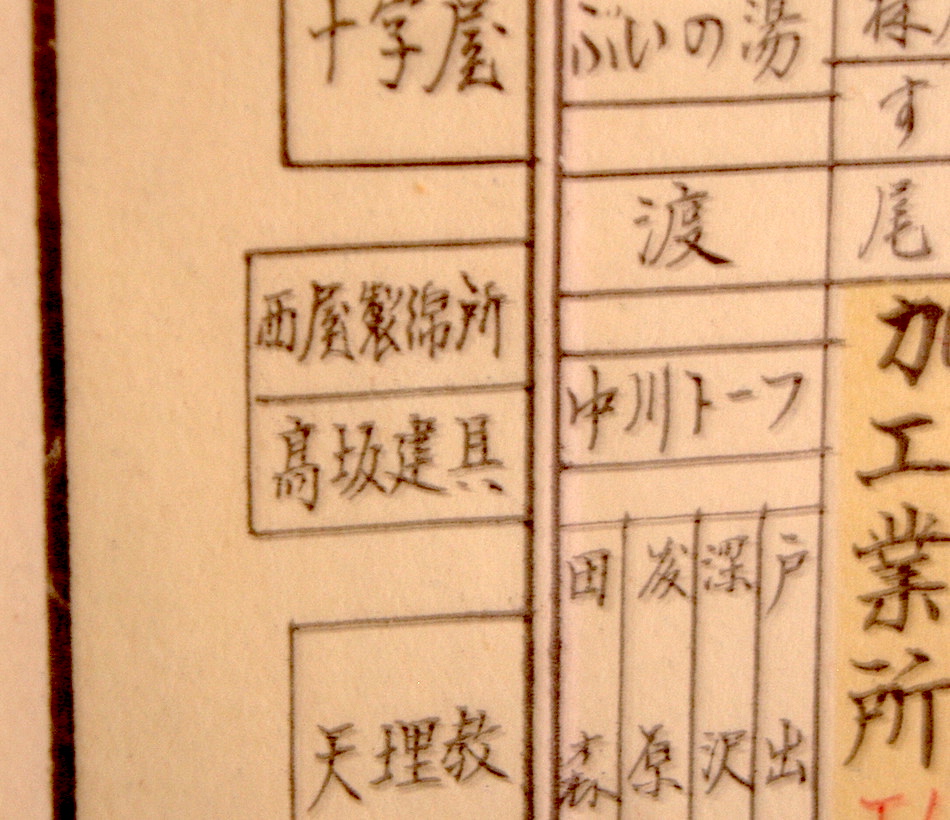 十字屋
西屋製綿所
高坂建具
天理教
ぶいの湯
渡
中川トーフ
田森
原
深沢
戸出
す
尾
加工業所